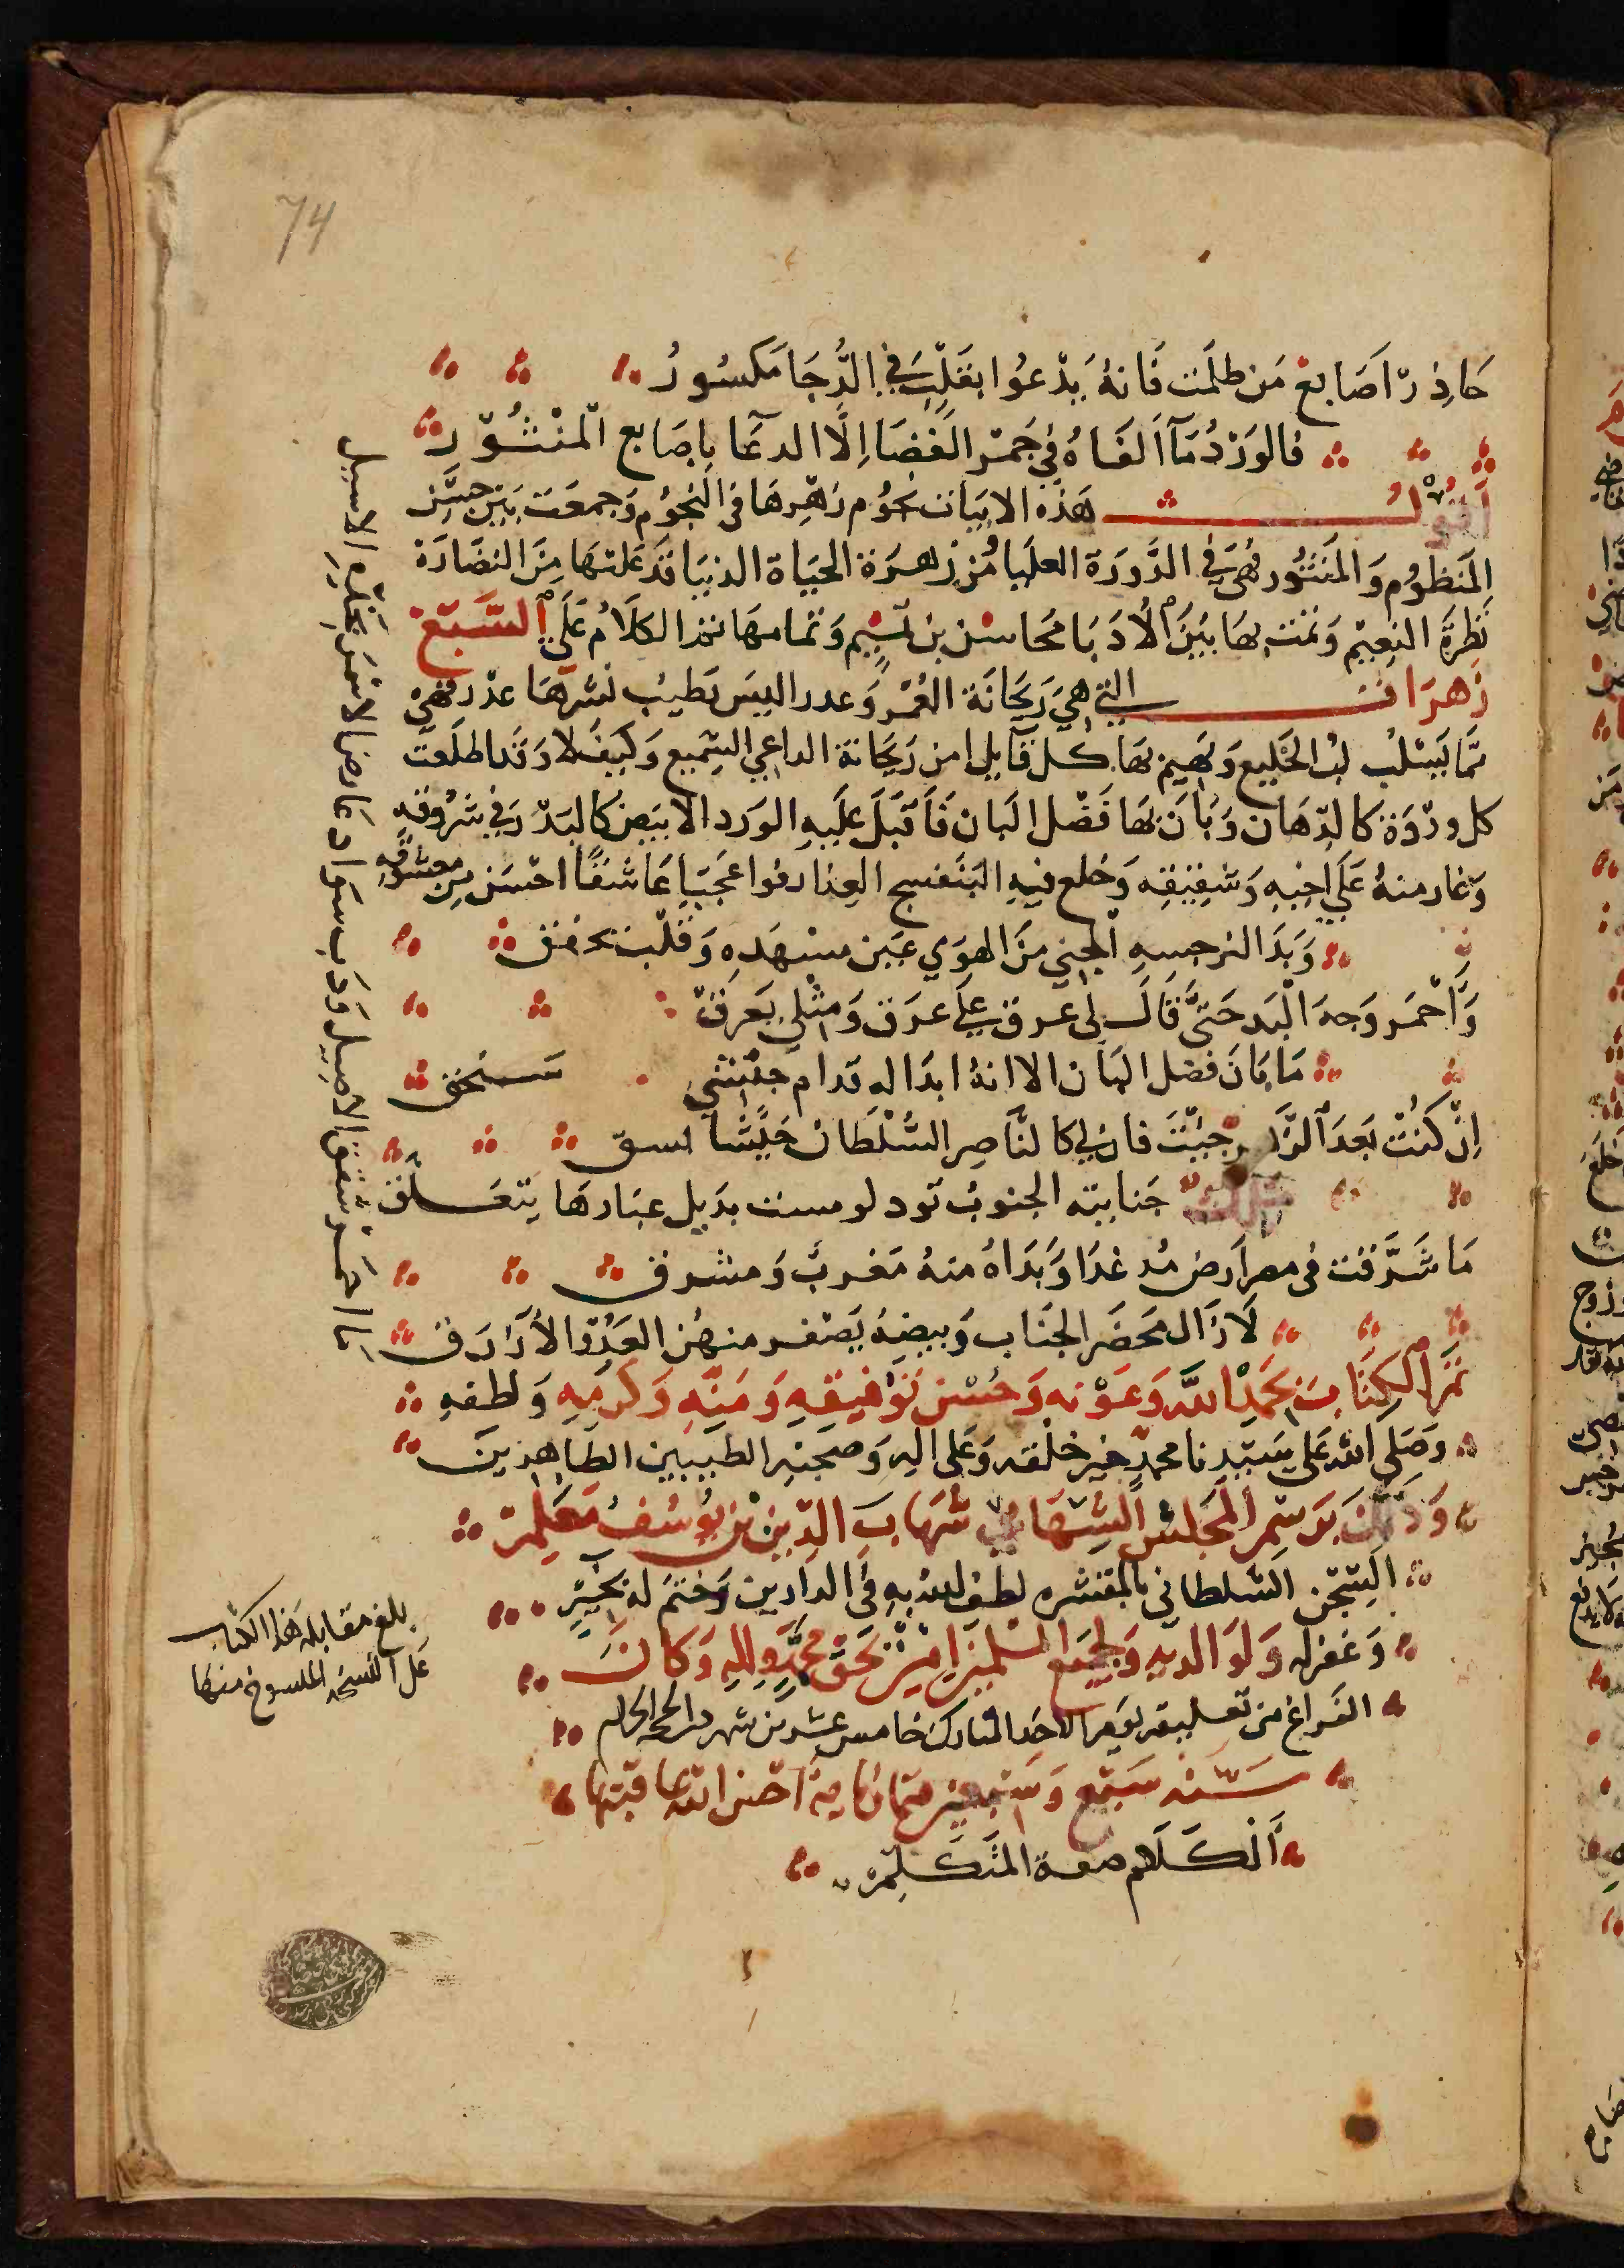 74
حَاذِرْ اَصَابِعَ مَن ظلَمْت فَانهُ يَدْعُوا بقَلْبٍ في الدُّجَا مَكسُورُ
فالوَرْدُ مَآ اَلقَاهُ في جَمْر الغَضَا اِلَّا الدعَا بِاصَابع الْمنْثُوْر
اَقُوْلُ هَذه الابيَات نحُوم زَهْرِهَا في النجُوْم وَجمعَت بَيْن حسْن
المَنظوُم وَالمنثُور فهْىَ في الدَّوْرَة العليَا من زَهرَة الحيَاة الدنيَا قَد عَلتهَا مِنَ النضَارَة
نَظرةَ النعِيْم وَنمت بهَا بَيْنَ الأُدَبَا محَاسْن بن تميْم وَتمامهَا نمذا الكلَامُ عَلَى السَّبْع
زَهرَات التي هيَ رَيحَانَة العُمْر وَعدر البيس بَطيْب نَشرهَا عدر فهيَ
مَّما يَسْلُب لب الخَليع وَيَهيم بَهَا كل قَآيل امن رَيحَانة الداعِي السَّميع وَكيفَ لا وَقَد اطلعَت
كل وردَة كالدّهَان وَبَانَ بهَا فَضْل البَان فَأَقبَلَ عليَهِ الوَرد الابيَض كالبَدْر في شرُوقهِ
وَغار منهُ عَلَى اخيْهِ وَشقيْقِه وَخلع فيهِ البَنَفسج العِذار فوا عَجَبَا عَاشقًا احْسَن مِن معشُوقهِ
وَبَدَا لنرجسهِ الجنِي مَن الهوَي عَين مسْهَدِه وَقلْب يخفق
وَاَحْمَر وَجه الْبَد حَتىَّ قَالَ لى عرق عَلَى عرَق وَمثْلي يَعَرَق
مَا بَانَ فضل البَان الا انهُ ابدَا له قدام جنْتي سَنجق
اِنْ كنْت بَعدَ الوَرد جيْتَ فان لي كالنَّاصِر السُّلْطَان جَيْشًا سق
جنَابته الجنوبُ تود لو مست بذيل غبَارهَا يتعَلق
مَا شَرَّفت في مصر ارض مُد غدَا وَبَدَاهُ منهُ مَغربٌ وَمشرق
لَا زَال محضَر الجنَاب وَبيضهُ يَصفر منهُن العَدُوّ الأَزرَق
تمَّ الكِتَاب بحَمدِ اللَّه وَعَوْنه وَحُسْن تَوْفيقِهِ وَمَنّهِ وَكرمِهِ وَلطفهِ
وَصَلى اللّه عَلى سَيّدِنا محمدٍ خير خلْقه وَعَلى الِه وَصحبْهِ الطيّبين الطاهرينَ
وَذَلكَ برَسْم المجلسْ الشِّهَابي شهَاب الدّين بْن يُوسُف معَلم
السّجْن السّلطاني بالمقشره لطف الله بهِ في الدارين وَختمَ لهُ بخَيْرٍ
وَغفر لهُ وَلوَالديهِ وَلجَميْع المسْلميْن امِيْن بحَق محمَّدٍ وَالِهِ وَكانَ
الفَراغ من تعليقه يوَم الاحَد المبارك خامس عشر من شهر ذي الحجه الحرام
سَنه سَبْع وَسَبْعين وثمانمايَه احْسن الله عاقبتها
اَلْكَلَام صفة المتَكلّم
يا احمد شقق الاصيل وَدَب سَوَاد عَارضا لاسْمَر بخدّه الاسيل
بلغ مقابله هَذا الكتَاب
عَلى النسخه المنسوخ منها